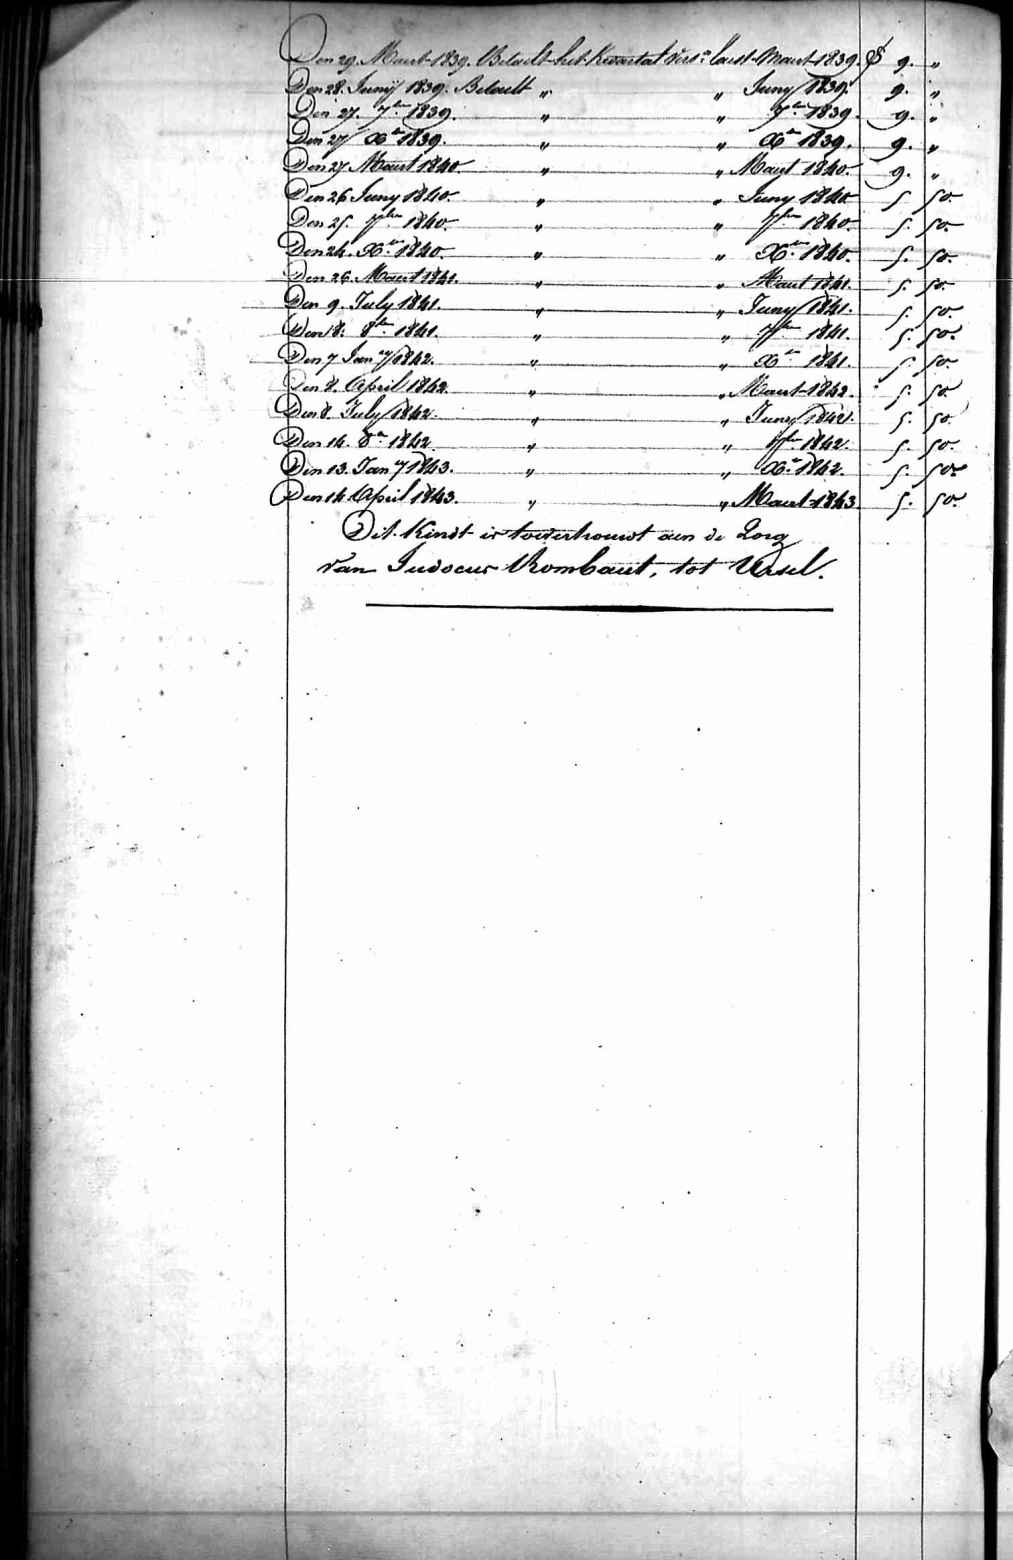 Den 29. Maert 1839. Betaelt het kwartal vers.n laest Maert 1839. $ 9. „
Den 28. Juny 1839. Betaelt „ „ Juny 1839. 9. „
Den 27. 7.bre 1839. „ „ 7.bre 1839. 9. „
Den 27 X.bre 1839. „ „ X.bre 1839. 9. „
Den 27 Maert 1840. „ „ Maert 1840. 9. „
Den 26 Juny 1840. „ „ Juny 1840. 5 50.
Den 25. 7bre 1840. „ „ 7bre 1840. 5. 50.
Den 24. X.bre 1840. „ „ X.bre 1840. 5. 50.
Den 26. Maert 1841. „ „ Maert 1841. 5. 50.
Den 9. July 1841. „ „ Juny 1841. 5. 50.
Den 8. 8bre 1841. „ „ 7bre 1841. 5. 50.
Den 7 Jan.y 1842. „ „ X.bre 1841. 5. 50.
Den 8. April 1842. „ „ Maert 1842. 5. 50.
Den 8. July 1842. „ „ Juny 1842. 5. 50.
Den 14. 8.re 1842 „ „ 7bre 1842. 5. 50.
Den 13. Jan.y 1843. „ „ X.re 1842. 5. 50.
Den 14 April 1843. „ „ Maert 1843. 5. 50.
Dit Kindt is toevertrouwt aen de Zorg
van Judocus Rombaut, tot Ursel.